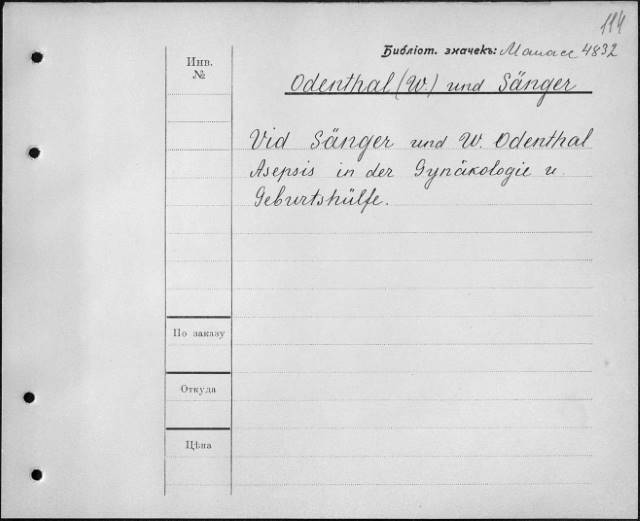 114
Библіот. значекъ: Манасс 4832
Инв.
№
Odenthal (W.) und Sänger
Vid Sänger und W. Odenthal
Asepsis in der Gynäkologie u.
Geburtshülfe.
По заказу
Откуда
Цѣна